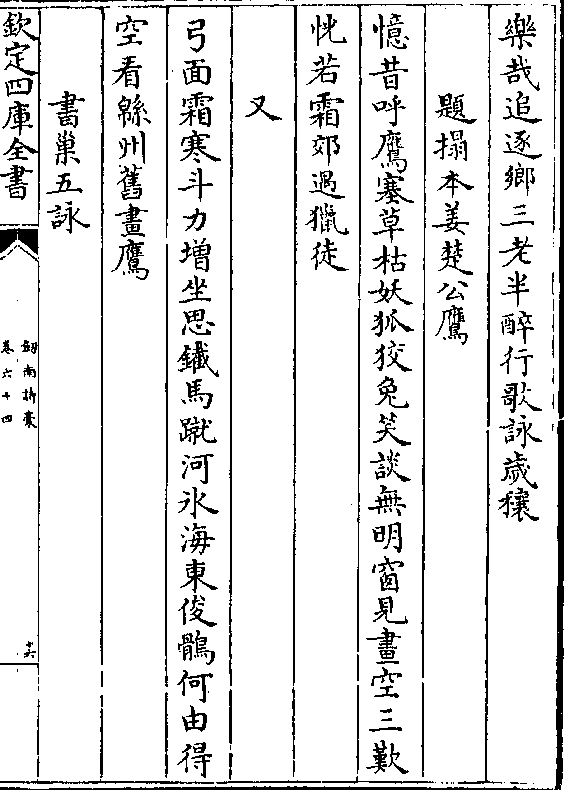 樂哉追逐鄉三老半醉行歌詠歲穰
題搨本姜楚公鷹
憶昔呼鷹塞草枯妖狐狡兔笑談無明窗見畫空三歎
恍若霜郊遇獵徒
又
弓面霜寒斗力增坐思鐵馬蹴河氷海東俊鶻何由得
空看緜州舊畫鷹
書巢五詠
欽定四庫全書
劔南詩稾
卷六十四
十六